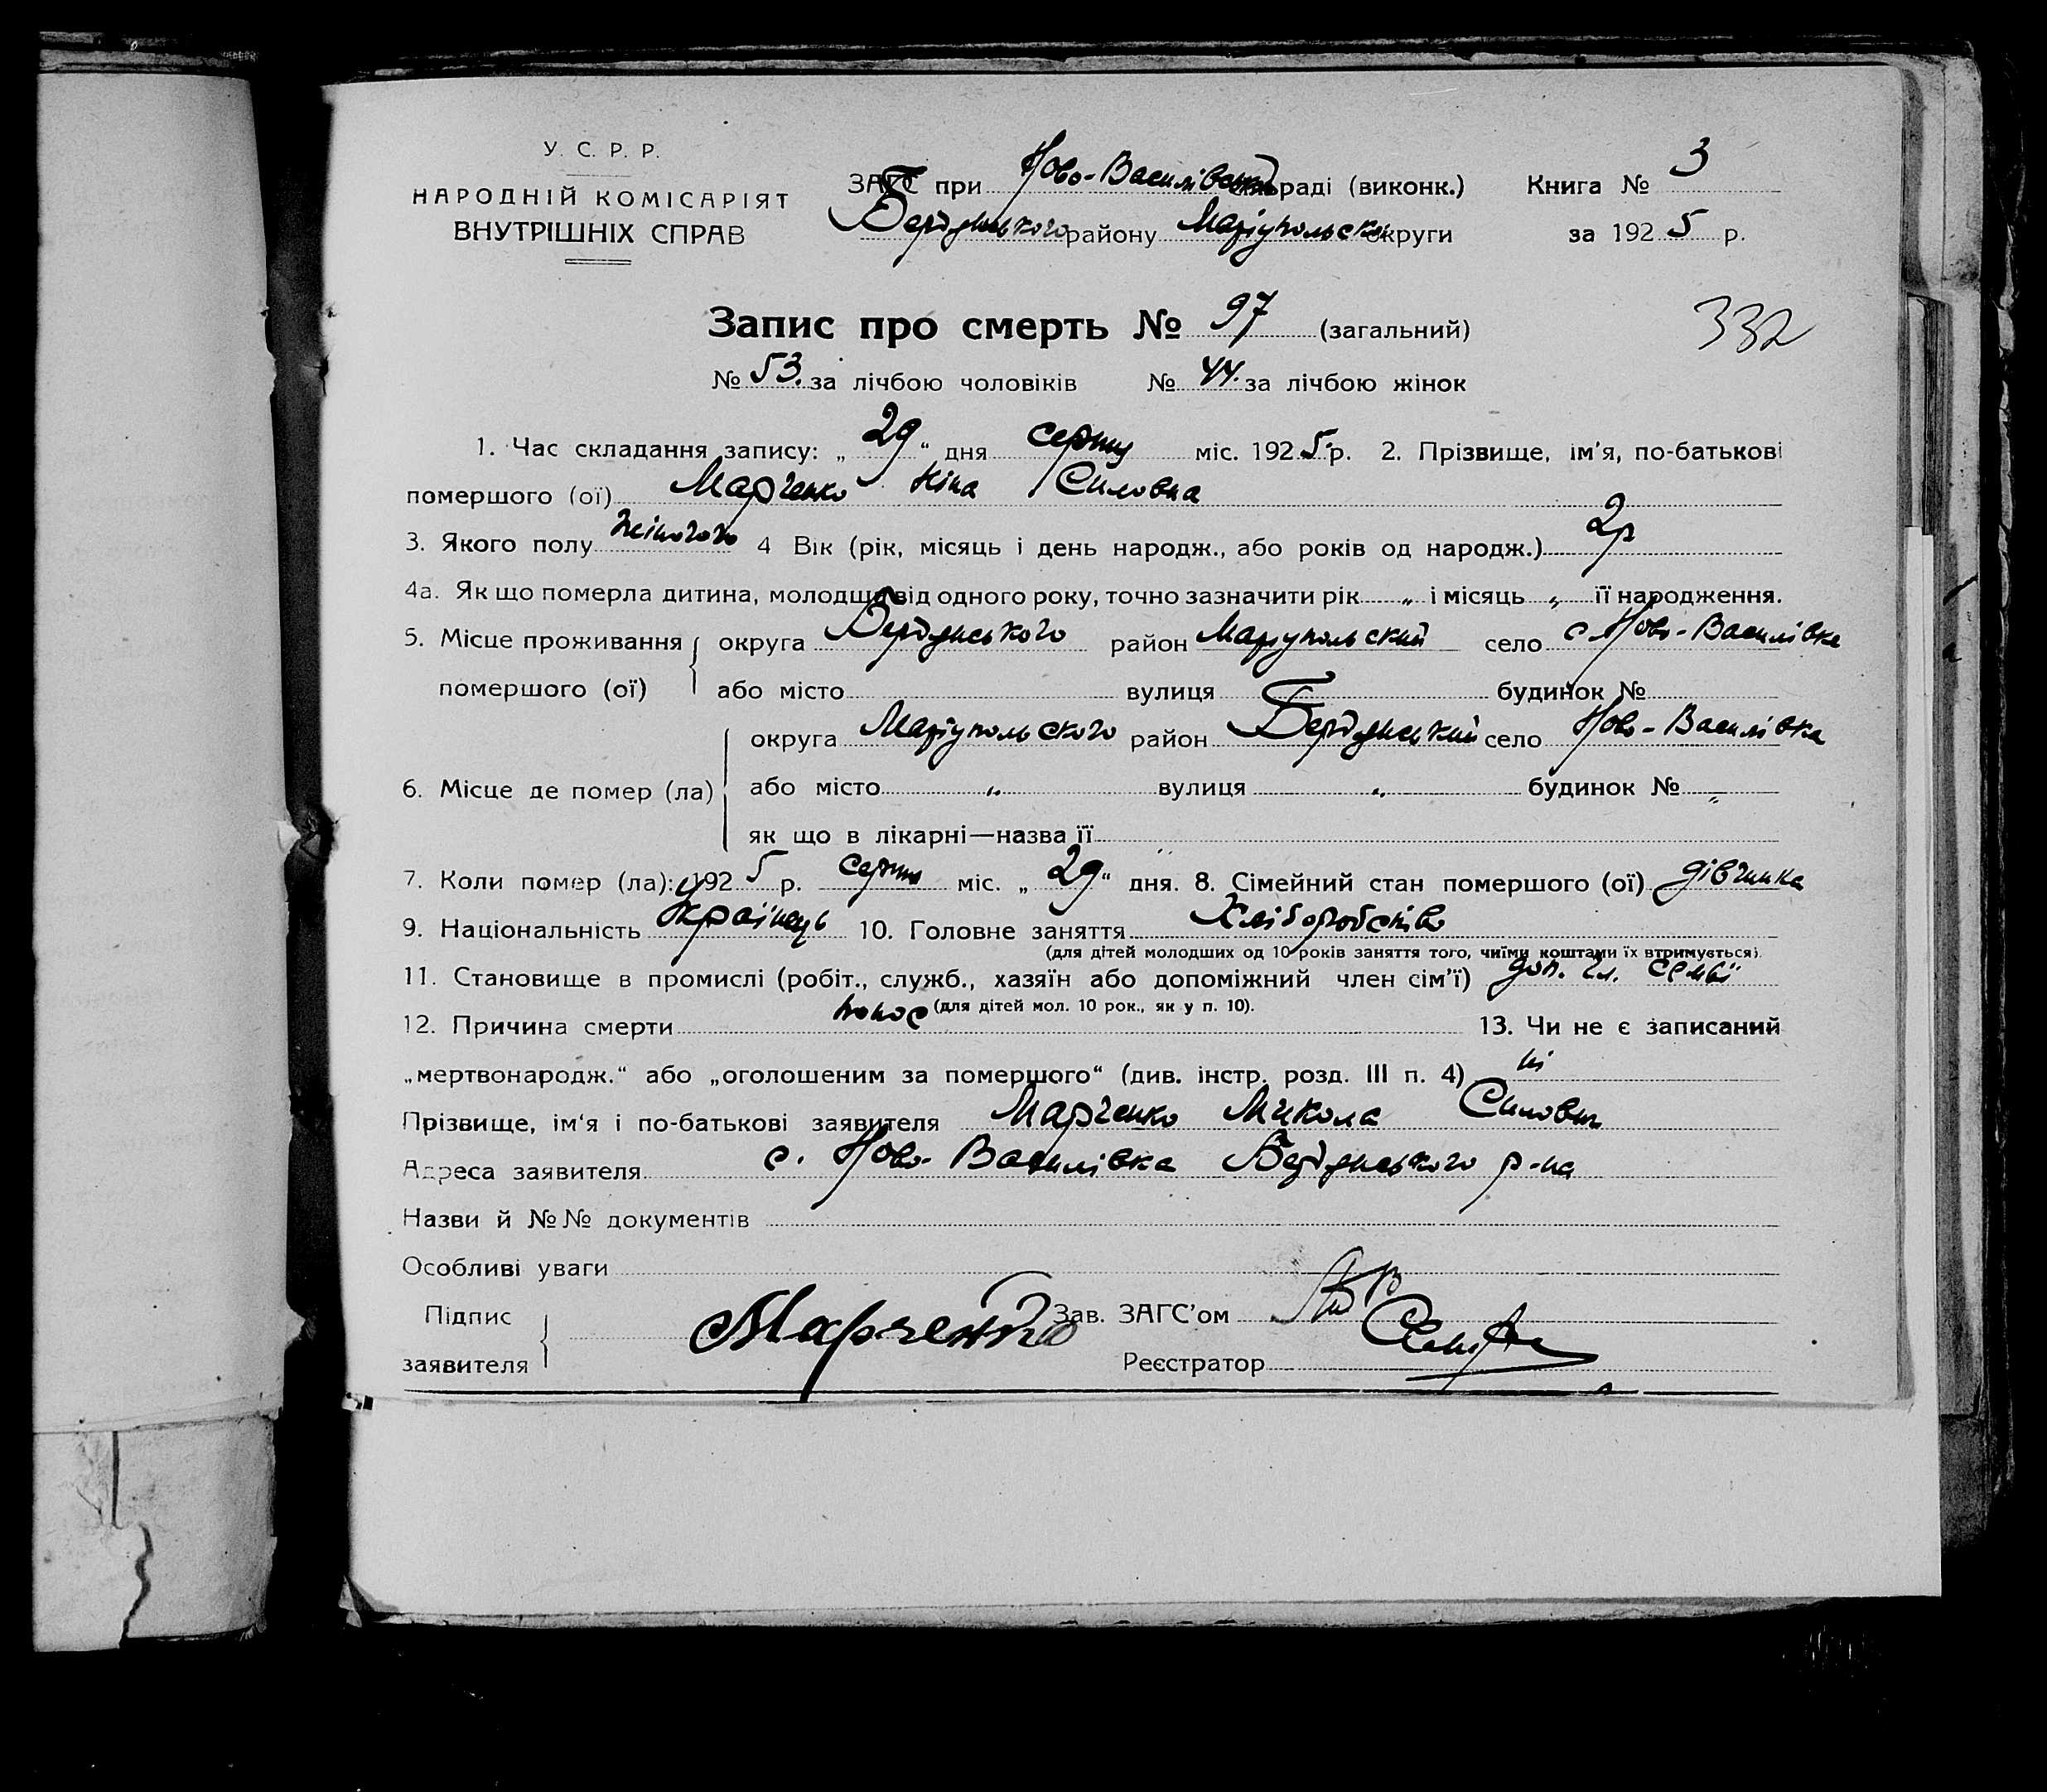 У. С. Р. Р.
НАРОДНІЙ КОМІСАРІЯТ
ВНУТРІШНІХ СПРАВ
ЗАГС при Ново-Василівській раді (виконк.)
Бердянського району Маріупольської округи
Книга № 3
за 1925 р.
Запис про смерть № 97 (загальний)
332
№ 53. за лічбою чоловіків № 44. за лічбою жінок
1. Час складання запису: „29“ дня серпня міс. 1925 р. 2. Прізвище, ім’я, по-батькові
помершого (ої) Марченко Ніна Силовна
3. Якого полу жіночого 4 Вік (рік, місяць і день народж., або років од народж.) 2р
4а. Як що померла дитина, молодша від одного року, точно зазначити рік „ і місяць „ її народження.
5. Місце проживання помершого (ої) округа Бердянського район Маріупольский село с. Ново-Василівка
або місто вулиця будинок №
6. Місце де помер (ла) округа Маріупольского район Бердянський село Ново-Василівка
або місто „ вулиця „ будинок № „
як що в лікарні—назва її
7. Коли помер (ла): 1925 р. серпня міс. „29“ дня. 8. Сімейний стан помершого (ої) дівчинка
9. Національність Українець 10. Головне заняття Хліборобство
(для дітей молодших од 10 років заняття того, чиїми коштами їх втримується).
11. Становище в промислі (робіт., служб., хазяїн або допоміжний член сім’ї) доп. чл. семьї
(для дітей мол. 10 рок., як у п. 10).
12. Причина смерти понос 13. Чи не є записаний
„мертвонародж.“ або „оголошеним за помершого“ (див. інстр. розд. III п. 4) ні
Прізвище, ім‘я і по-батькові заявителя Марченко Микола Силович
Адреса заявителя с. Ново-Василівка Бердянського р-на
Назви й №№ документів
Особливі уваги
Підпис заявителя Марченко
Зав. ЗАГС’ом
Реєстратор